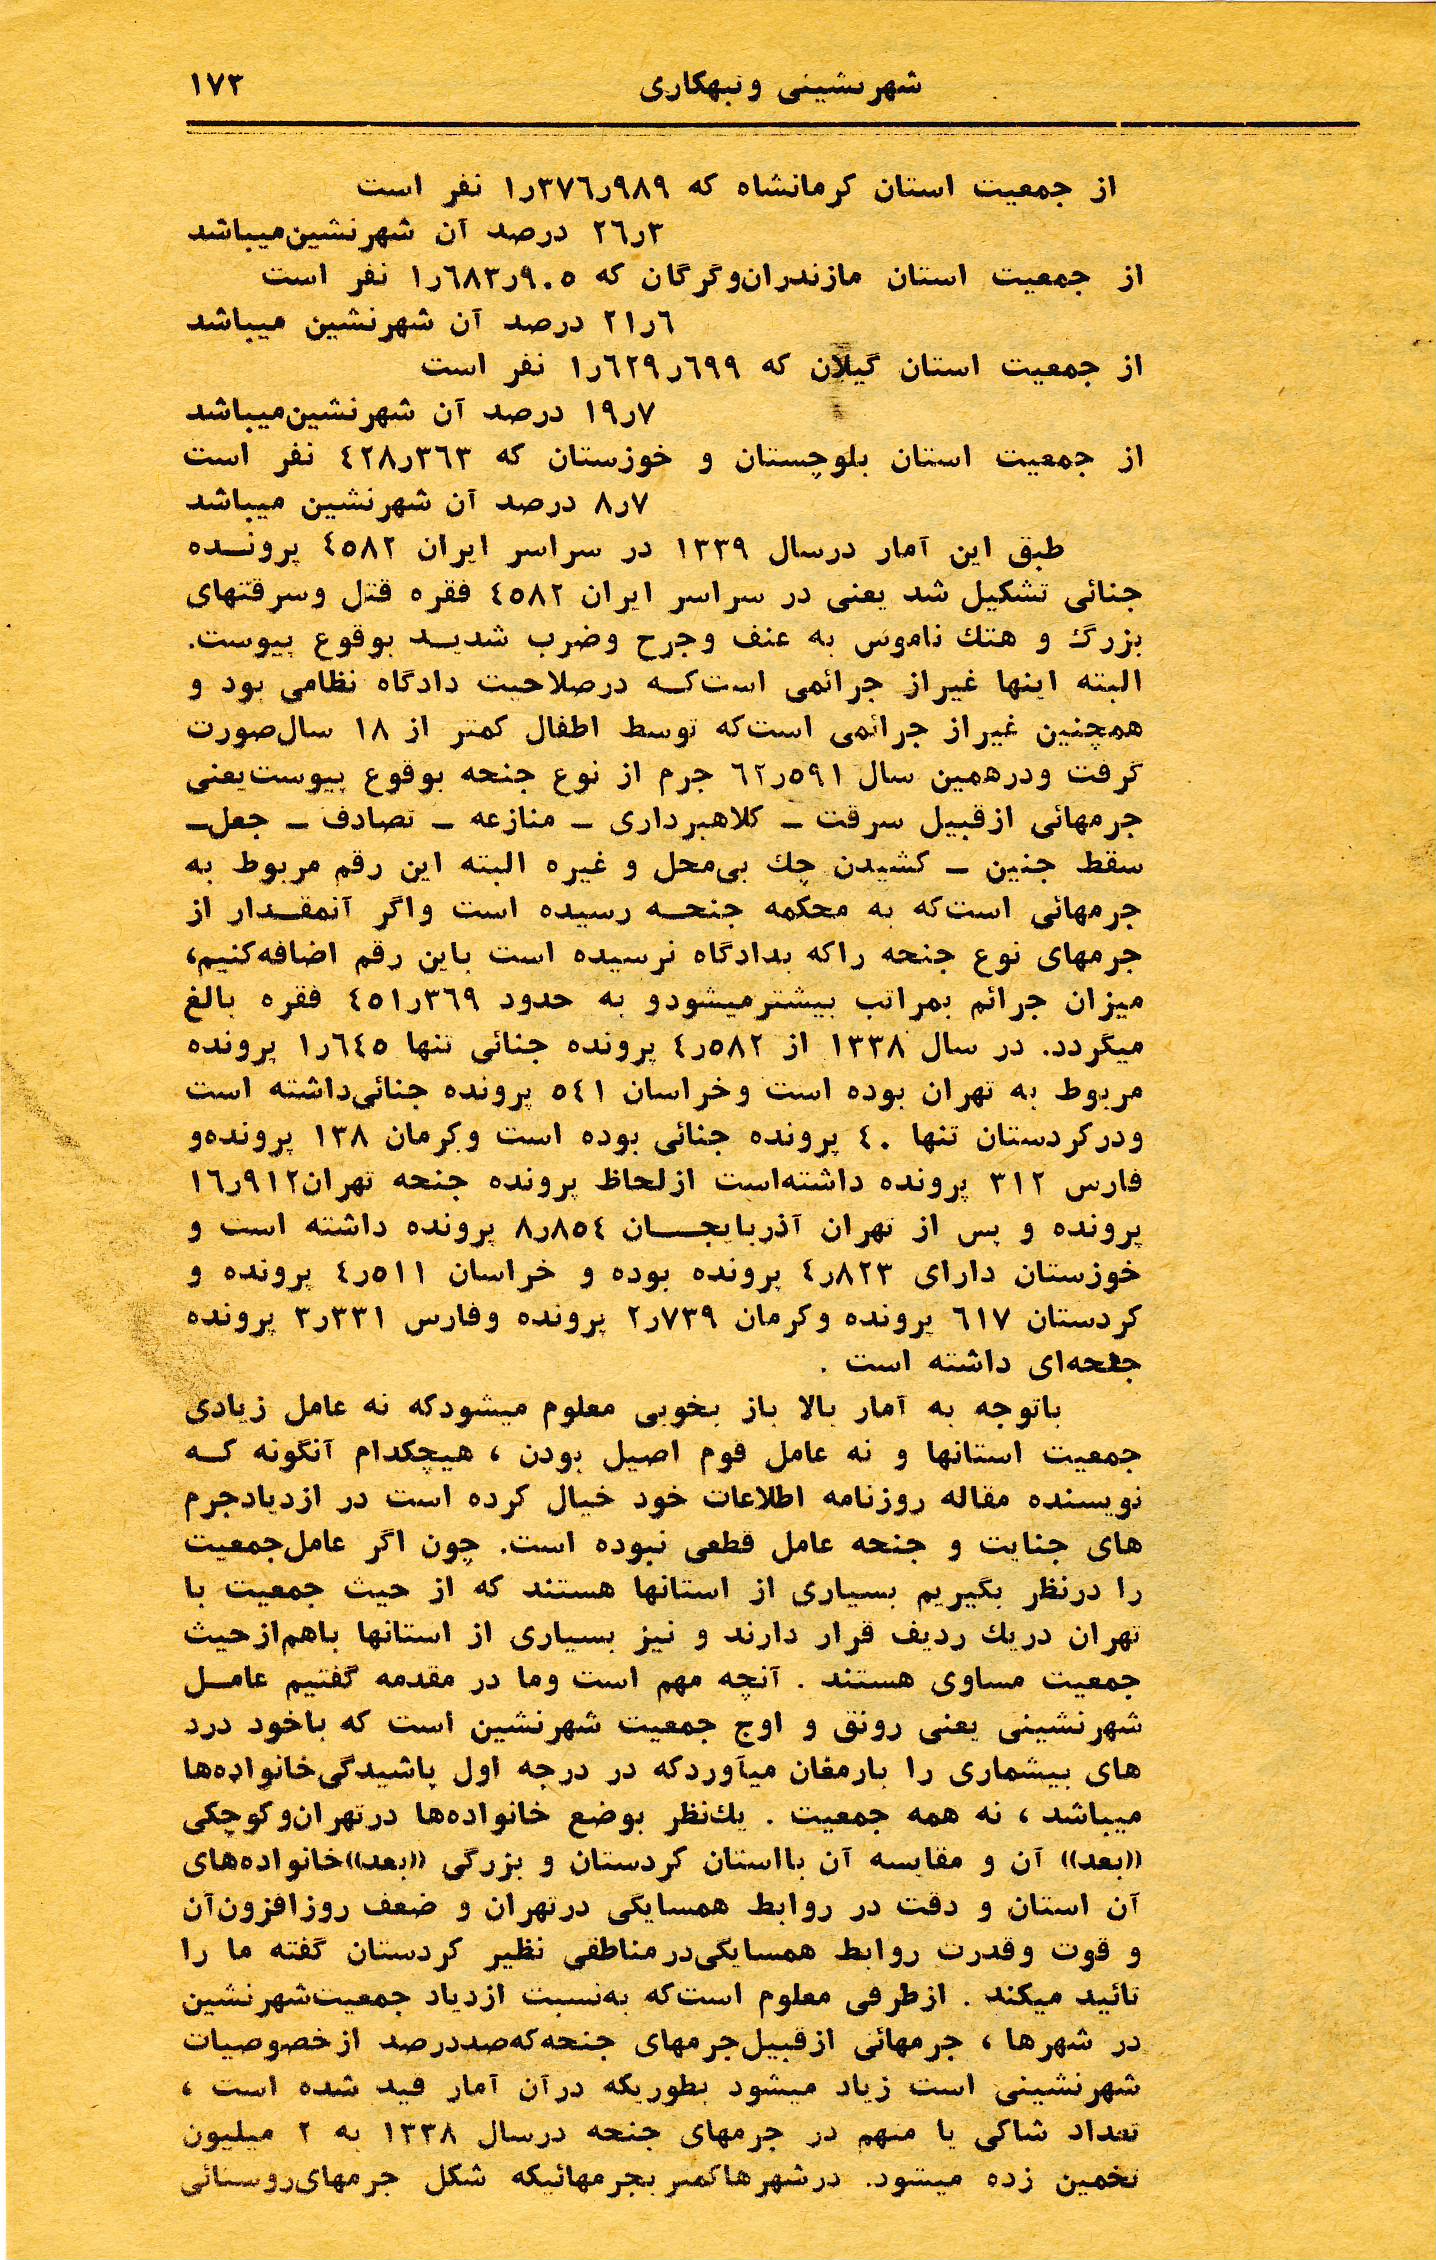 شهرنشینی و تبهکاری ۱۷۳
از جمعیت استان کرمانشاه که ۱ر۳۷٦ر۹۸۹ نفر است
۲٦ر۳ درصد آن شهرنشین‌میباشد
از جمعیت استان مازندران‌وگرگان که ۱ر٦۸۳ر۹۰٥ نفر است
۲۱ر٦ درصد آن شهرنشین میباشد
از جمعیت استان گیلان که ۱ر٦۲۹ر٦۹۹ نفر است
۱۹ر۷ درصد آن شهرنشین‌میباشد
از جمعیت استان بلوچستان و خوزستان که ٤۲۸ر۳٦۳ نفر است
۸ر۷ درصد آن شهرنشین میباشد
طبق این آمار درسال ۱۳۳۹ در سراسر ایران ٤٥۸۲ پرونده
جنائی تشکیل شد یعنی در سراسر ایران ٤٥۸۲ فقره قتل وسرقتهای
بزرگ و هتك ناموس به عنف وجرح وضرب شدید بوقوع پیوست.
البته اینها غیراز جرائمی است‌که درصلاحیت دادگاه نظامی بود و
همچنین غیراز جرائمی است‌که توسط اطفال کمتر از ۱۸ سال‌صورت
گرفت ودرهمین سال ٦۲ر٥۹۱ جرم از نوع جنحه بوقوع پیوست‌یعنی
جرمهائی ازقبیل سرقت – کلاهبرداری – منازعه – تصادف – جعل–
سقط جنین – کشیدن چك بی‌محل و غیره البته این رقم مربوط به
جرمهائی است‌که به محکمه جنحه رسیده است واگر آنمقدار از
جرمهای نوع جنحه راکه بدادگاه نرسیده است باین رقم اضافه‌کنیم،
میزان جرائم بمراتب بیشترمیشودو به حدود ٤٥۱ر۳٦۹ فقره بالغ
میگردد. در سال ۱۳۳۸ از ٤ر٥۸۲ پرونده جنائی تنها ۱ر٦٤٥ پرونده
مربوط به تهران بوده است وخراسان ٥٤۱ پرونده جنائی‌داشته است
ودرکردستان تنها ٤۰ پرونده جنائی بوده است وکرمان ۱۳۸ پرونده‌و
فارس ۳۱۲ پرونده داشته‌است ازلحاظ پرونده جنحه تهران۱٦ر۹۱۲
پرونده و پس از تهران آذربایجان ۸ر۸٥٤ پرونده داشته است و
خوزستان دارای ٤ر۸۲۳ پرونده بوده و خراسان ٤ر٥۱۱ پرونده و
کردستان ٦۱۷ پرونده وکرمان ۲ر۷۳۹ پرونده وفارس ۳ر۳۳۱ پرونده
جنحه‌ای داشته است .
باتوجه به آمار بالا باز بخوبی معلوم میشودکه نه عامل زیادی
جمعیت استانها و نه عامل قوم اصیل بودن ، هیچکدام آنگونه که
نویسنده مقاله روزنامه اطلاعات خود خیال کرده است در ازدیادجرم
های جنایت و جنحه عامل قطعی نبوده است. چون اگر عامل‌جمعیت
را درنظر بگیریم بسیاری از استانها هستند که از حیث جمعیت با
تهران دریك ردیف قرار دارند و نیز بسیاری از استانها باهم‌ازحیث
جمعیت مساوی هستند . آنچه مهم است وما در مقدمه گفتیم عامل
شهرنشینی یعنی رونق و اوج جمعیت شهرنشین است که باخود درد
های بیشماری را بارمغان میآوردکه در درجه اول پاشیدگی‌خانواده‌ها
میباشد ، نه همه جمعیت . یك‌نظر بوضع خانواده‌ها درتهران‌وکوچکی
((بعد)) آن و مقایسه آن بااستان کردستان و بزرگی ((بعد))خانواده‌های
آن استان و دقت در روابط همسایگی درتهران و ضعف روزافزون‌آن
و قوت وقدرت روابط همسایگی‌درمناطقی نظیر کردستان گفته ما را
تائید میکند . ازطرفی معلوم است‌که به‌نسبت ازدیاد جمعیت‌شهرنشین
در شهرها ، جرمهائی ازقبیل‌جرمهای جنحه‌که‌صددرصد ازخصوصیات
شهرنشینی است زیاد میشود بطوریکه درآن آمار قید شده است ،
تعداد شاکی یا متهم در جرمهای جنحه درسال ۱۳۳۸ به ۲ میلیون
تخمین زده میشود. درشهرهاکمتر بجرمهائیکه شکل جرمهای‌روستائی